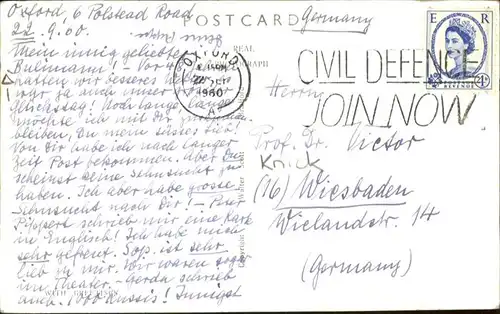 Oxford, 6 Polstead Road
22.9.60.
POSTCARD
Germany
Mein innig geliebter
Vor
hatten wir besseres
war ja auch unser
Glückstag! Noch lange lange
möchte ich mit Dir
bleiben, Du mein süsser
Von Dir habe ich nach langer
Zeit Post bekommen. Aber Du
scheinst keine Sehnsucht zu
haben. Ich aber habe grosse
Sehnsucht nach Dir! –
schrieb mir eine Karte
in Englisch! Ich habe mich
sehr gefreut. ist sehr
lieb zu mir. Wir waren sogar
im Theater. – Gerda schrieb
auch. 1000 Küssis! Innigst
OXFORD
SEP
1960
CIVIL DEFENCE
JOIN NOW
E R
REVENUE
Herrn
Prof. Dr. Victor
Knick
(16) Wiesbaden
Wielandstr. 14
(Germany)
REAL